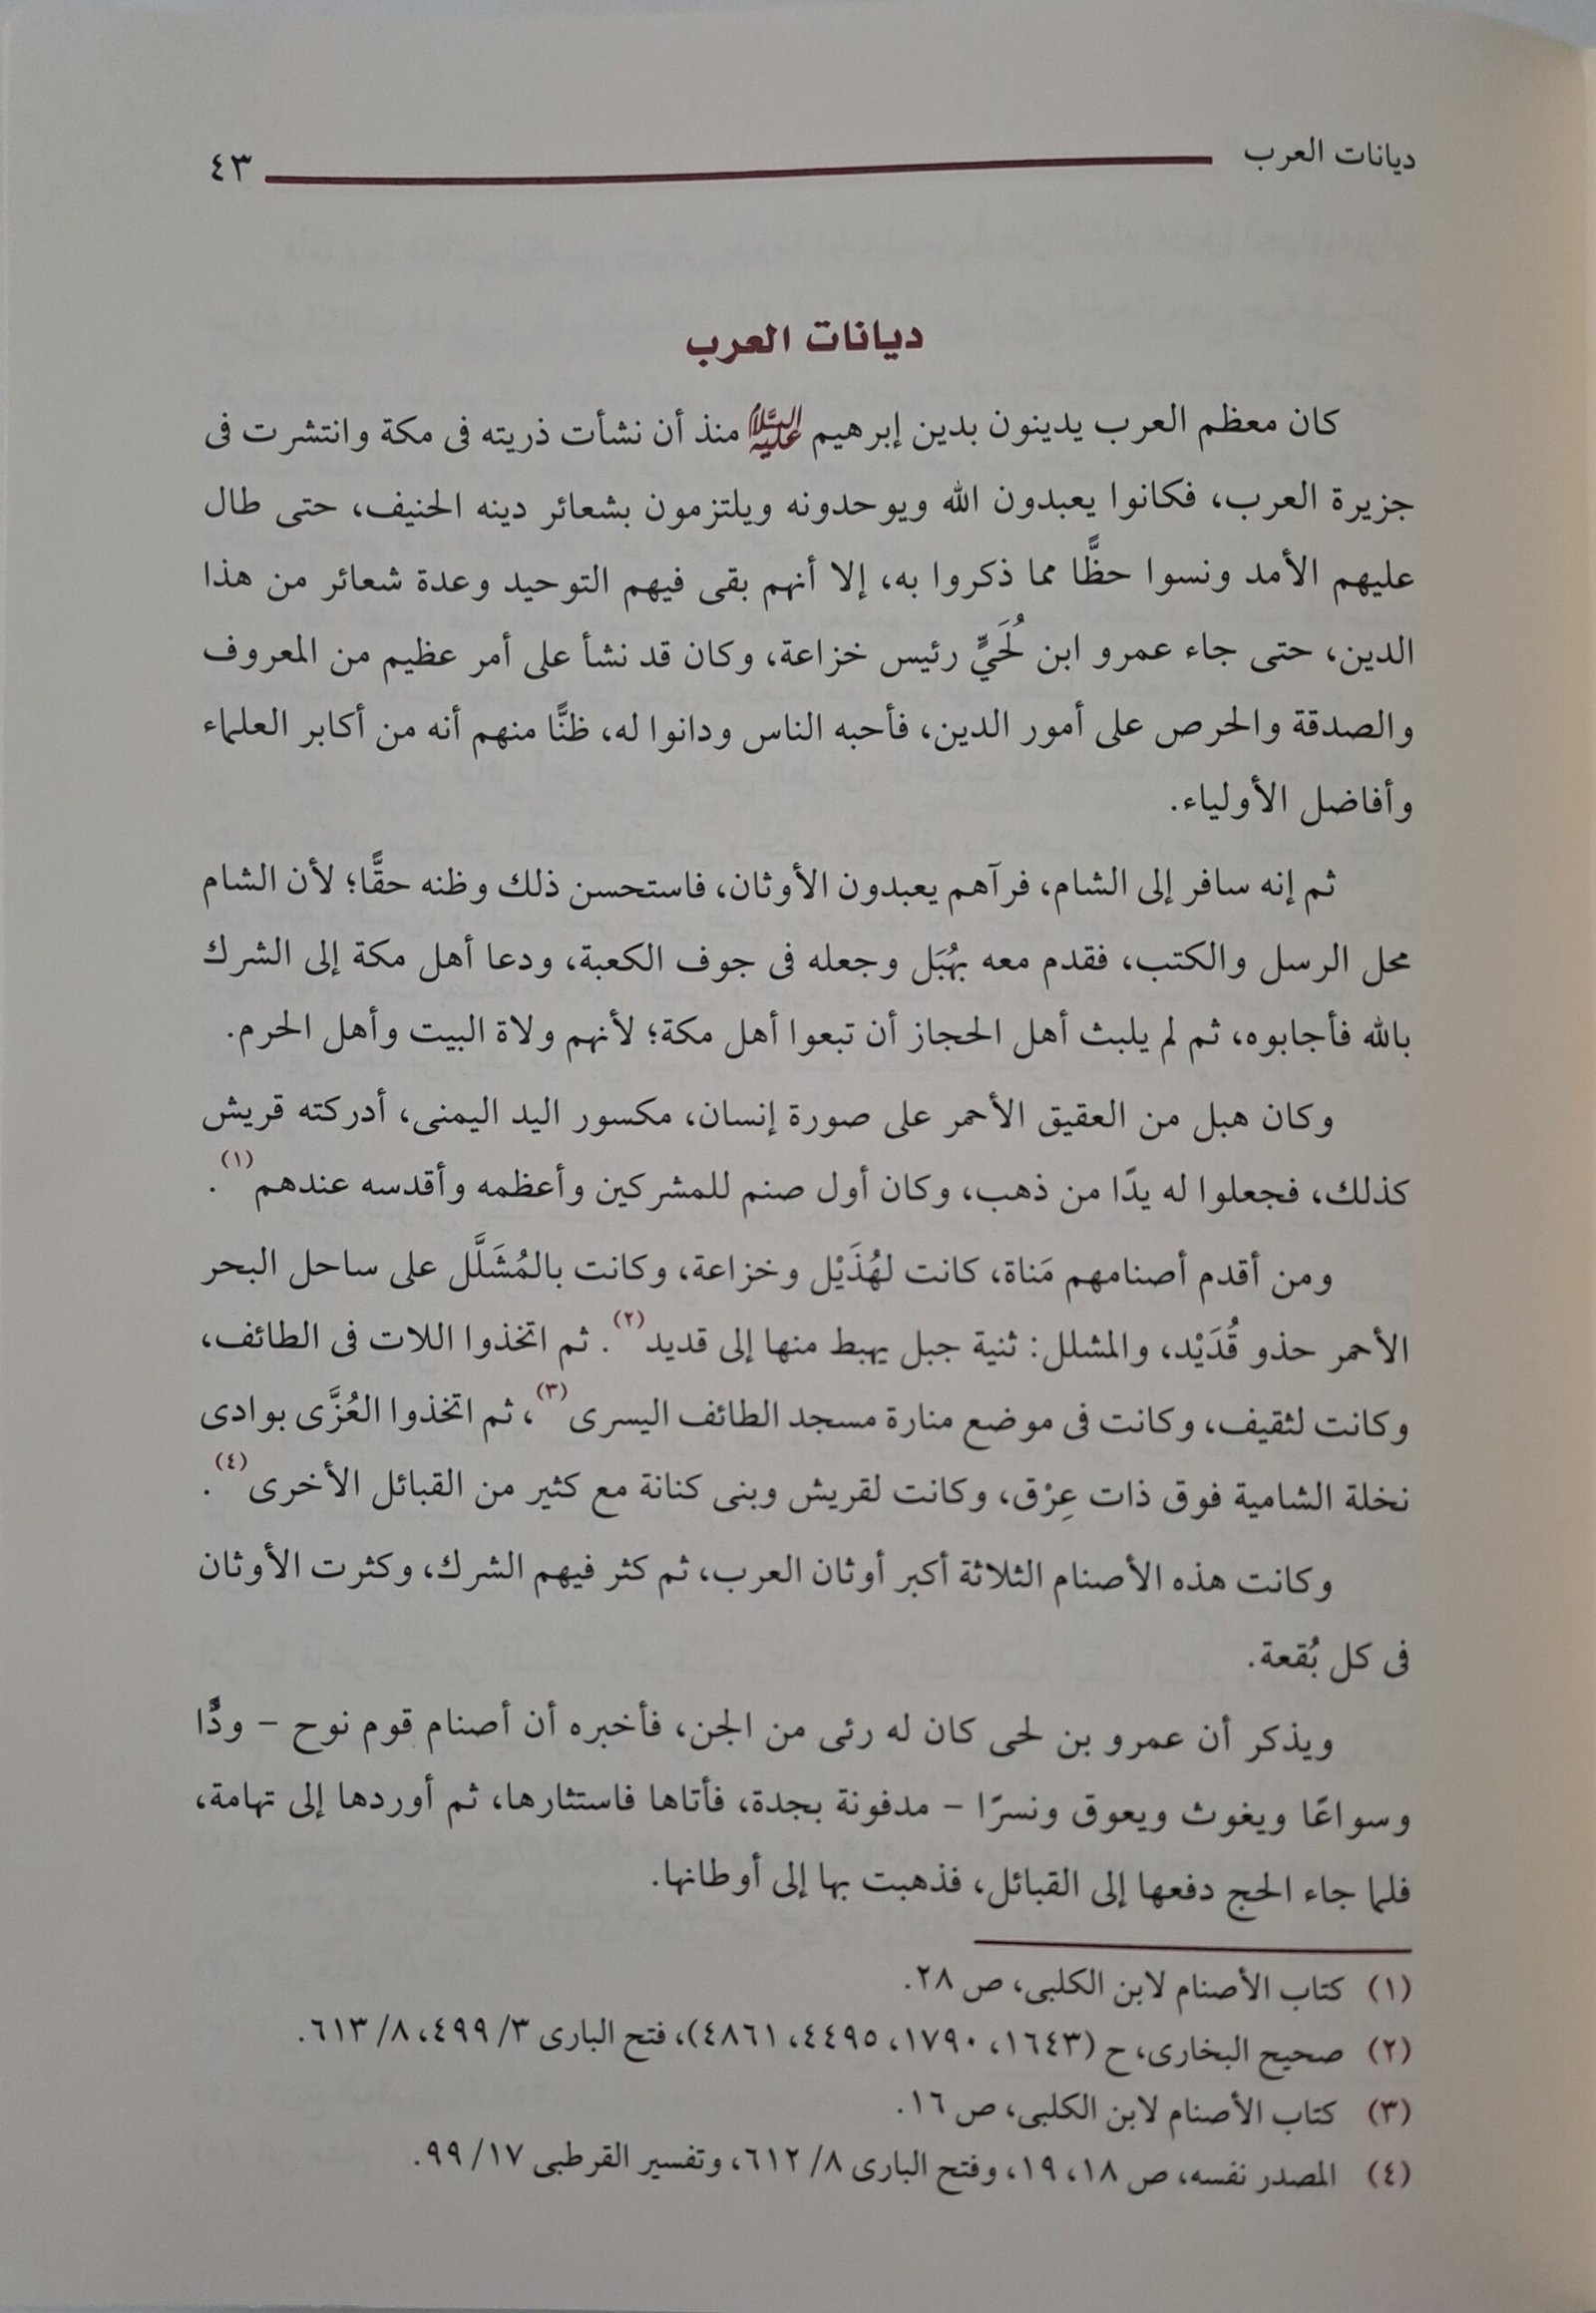 ديانات العرب ٤٣
ديانات العرب
كان معظم العرب يدينون بدين إبرهيم عليه السلام منذ أن نشأت ذريته فى مكة وانتشرت فى
جزيرة العرب، فكانوا يعبدون الله ويوحدونه ويلتزمون بشعائر دينه الحنيف، حتى طال
عليهم الأمد ونسوا حظًّا مما ذكروا به، إلا أنهم بقى فيهم التوحيد وعدة شعائر من هذا
الدين، حتى جاء عمرو ابن لُحَيٍّ رئيس خزاعة، وكان قد نشأ على أمر عظيم من المعروف
والصدقة والحرص على أمور الدين، فأحبه الناس ودانوا له، ظنًّا منهم أنه من أكابر العلماء
وأفاضل الأولياء.
ثم إنه سافر إلى الشام، فرآهم يعبدون الأوثان، فاستحسن ذلك وظنه حقًّا؛ لأن الشام
محل الرسل والكتب، فقدم معه بهُبَل وجعله فى جوف الكعبة، ودعا أهل مكة إلى الشرك
بالله فأجابوه، ثم لم يلبث أهل الحجاز أن تبعوا أهل مكة؛ لأنهم ولاة البيت وأهل الحرم.
وكان هبل من العقيق الأحمر على صورة إنسان، مكسور اليد اليمنى، أدركته قريش
كذلك، فجعلوا له يدًا من ذهب، وكان أول صنم للمشركين وأعظمه وأقدسه عندهم(١).
ومن أقدم أصنامهم مَناة، كانت لهُذَيْل وخزاعة، وكانت بالمُشَلَّل على ساحل البحر
الأحمر حذو قُدَيْد، والمشلل: ثنية جبل يهبط منها إلى قديد(٢). ثم اتخذوا اللات فى الطائف،
وكانت لثقيف، وكانت فى موضع منارة مسجد الطائف اليسرى(٣)، ثم اتخذوا العُزَّى بوادى
نخلة الشامية فوق ذات عِرْق، وكانت لقريش وبنى كنانة مع كثير من القبائل الأخرى(٤).
وكانت هذه الأصنام الثلاثة أكبر أوثان العرب، ثم كثر فيهم الشرك، وكثرت الأوثان
فى كل بُقعة.
ويذكر أن عمرو بن لحى كان له رئى من الجن، فأخبره أن أصنام قوم نوح – ودًّا
وسواعًا ويغوث ويعوق ونسرًا – مدفونة بجدة، فأتاها فاستثارها، ثم أوردها إلى تهامة،
فلما جاء الحج دفعها إلى القبائل، فذهبت بها إلى أوطانها.
(١) كتاب الأصنام لابن الكلبى، ص ٢٨.
(٢) صحيح البخارى، ح (١٦٤٣، ١٧٩٠، ٤٤٩٥، ٤٨٦١)، فتح البارى ٣/ ٤٩٩، ٨/ ٦١٣.
(٣) كتاب الأصنام لابن الكلبى، ص ١٦.
(٤) المصدر نفسه، ص ١٨، ١٩، وفتح البارى ٨/ ٦١٢، وتفسير القرطبى ١٧/ ٩٩.